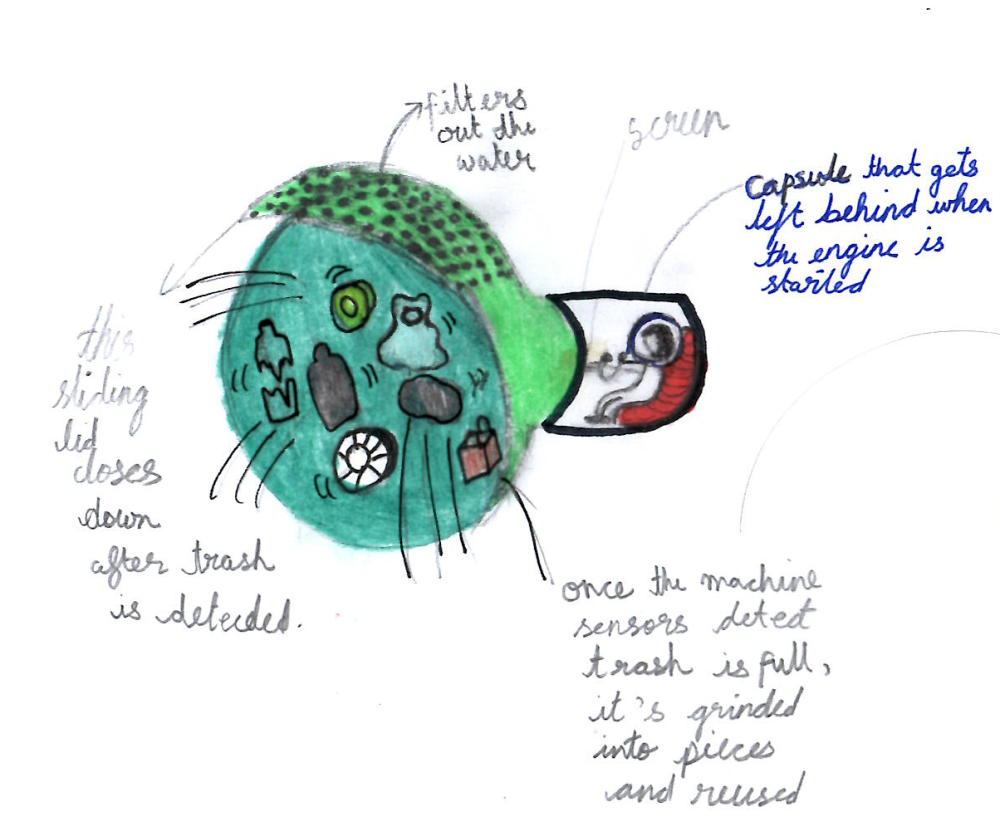 filters
out the
water
screen
Capsule that gets
left behind when
the engine is
started
this
sliding
lid
closes
down
after trash
is detected.
once the machine
sensors detect
trash is full,
it's grinded
into pieces
and reused